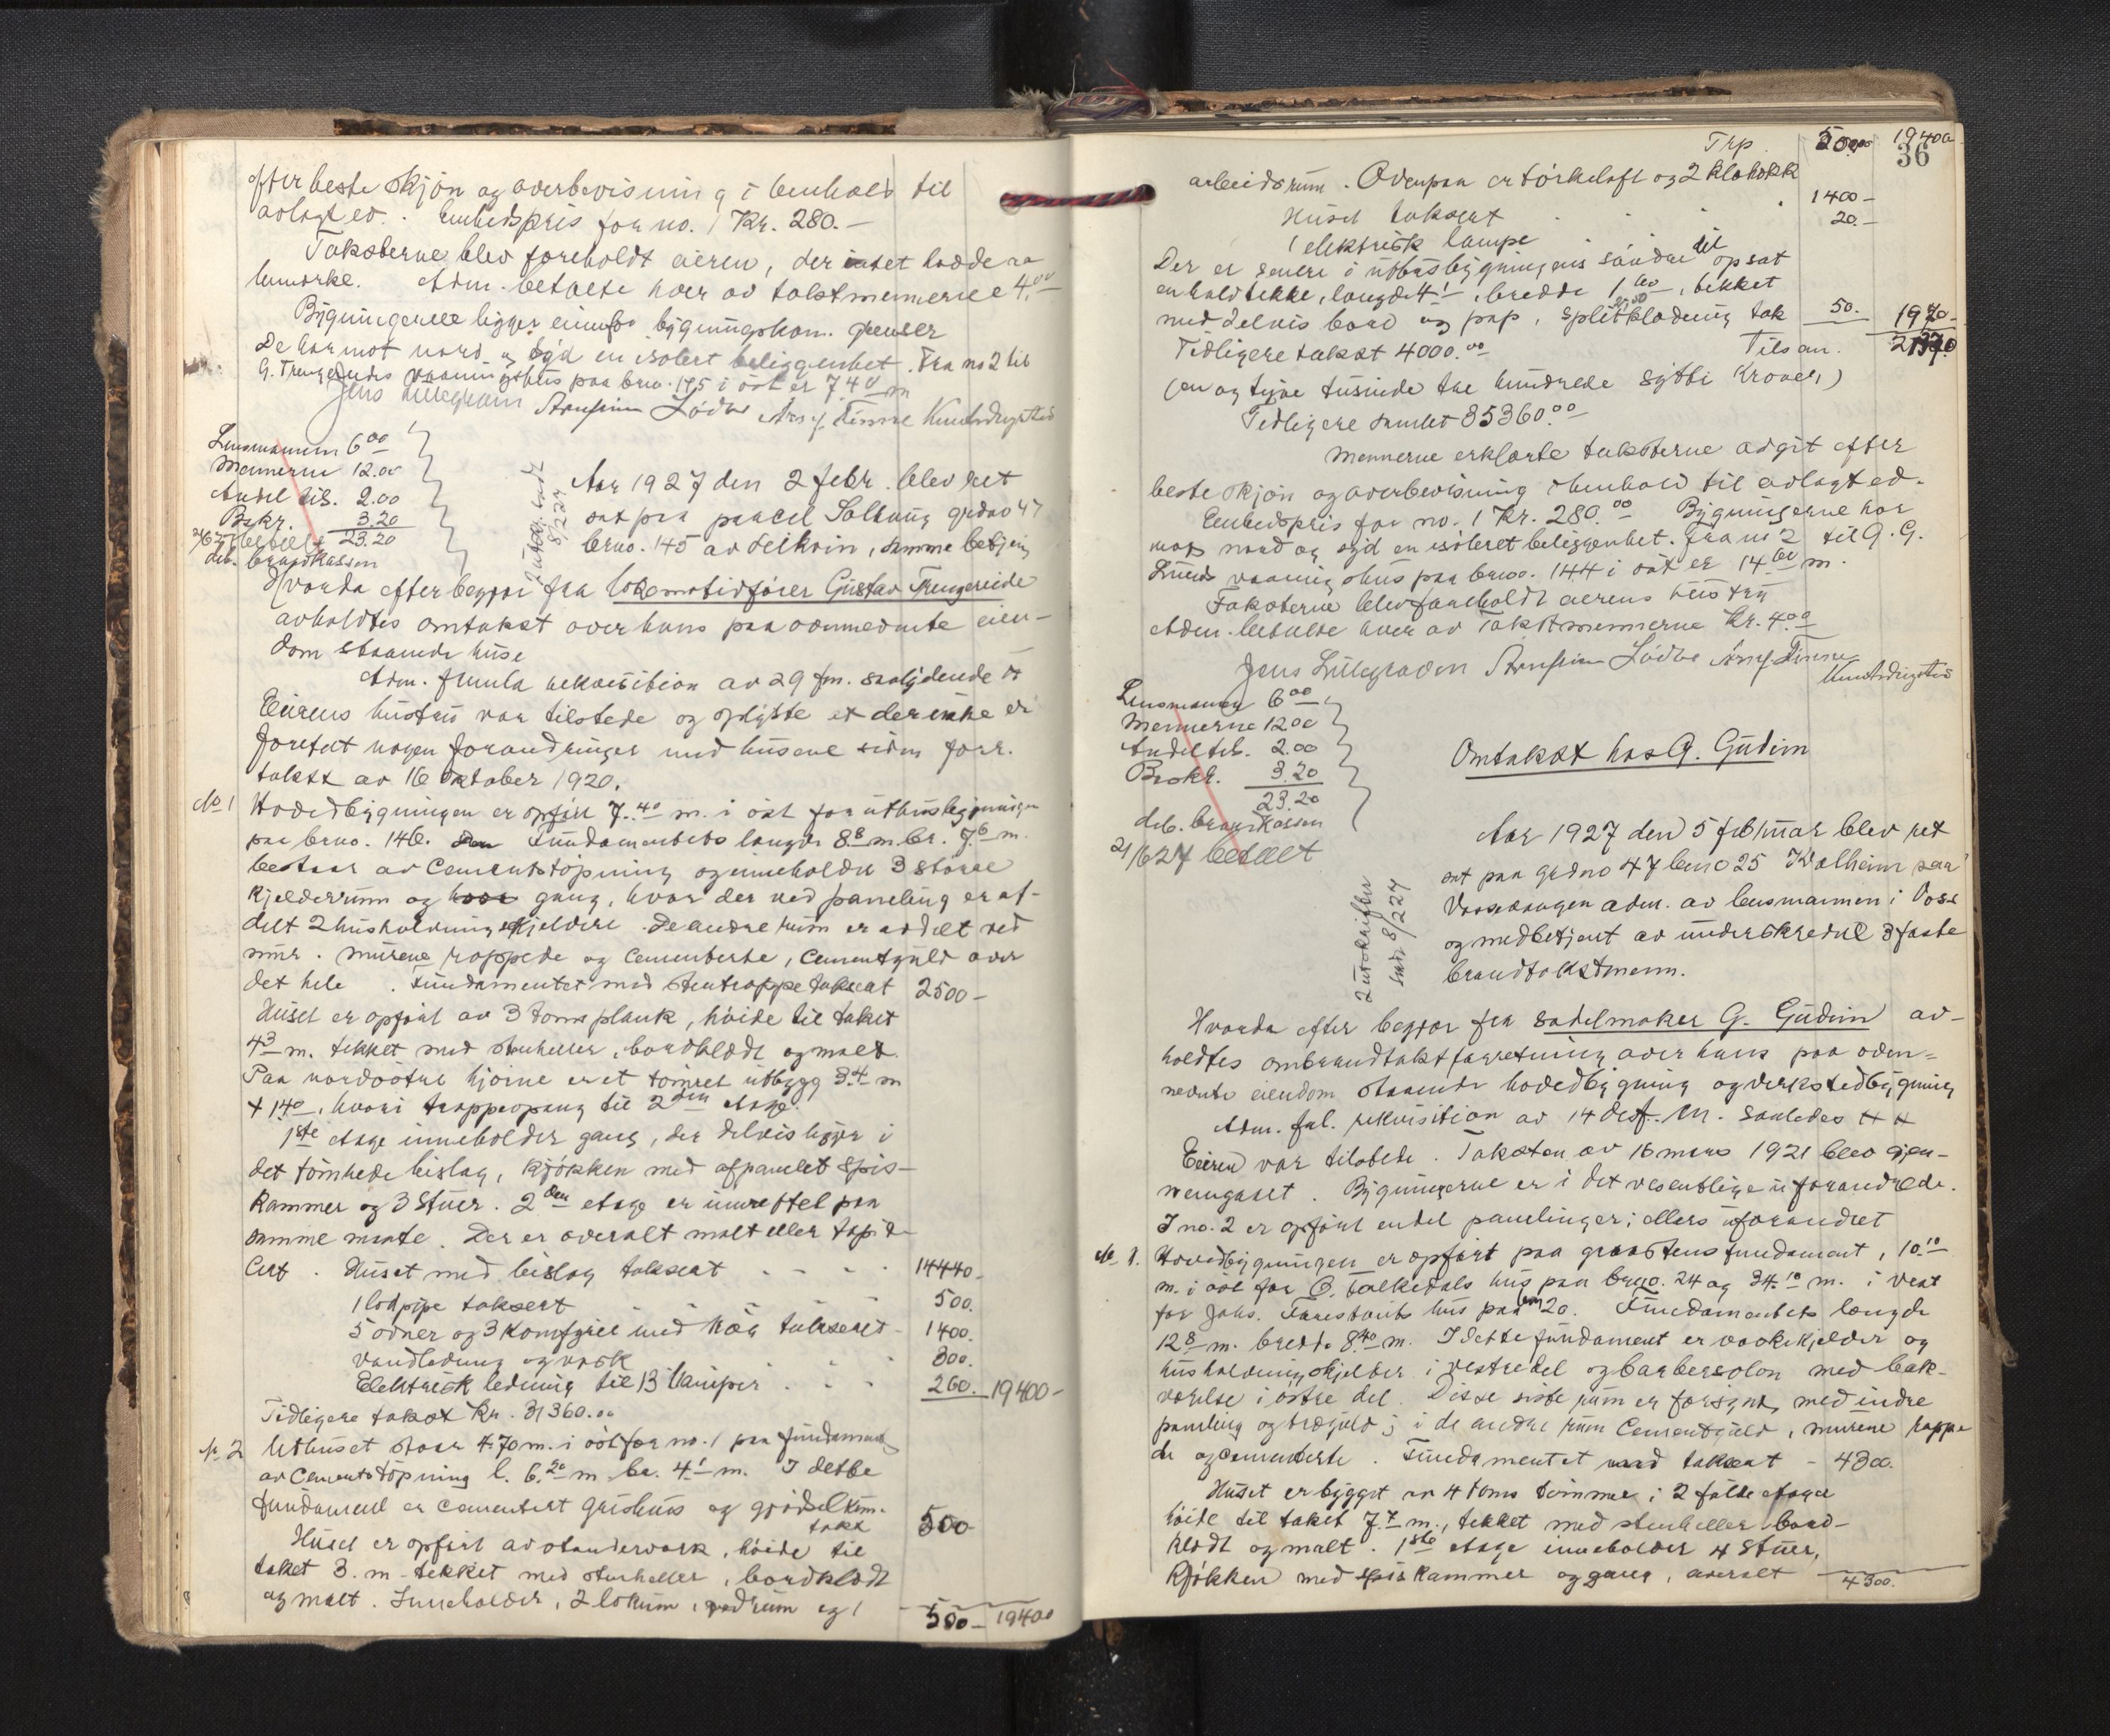 efter beste skjön og overbevisning i henhold til
avlagt ed. Enhedspris for no. 1 Kr. 280.–
Taksterne blev foreholdt eieren, der intet hadde at
bemerke. Adm. betalte hver av takstmennerne 4.00
Bygningerne ligger bygningskom. grenser
De har mot nord og syd en isolert beliggenhet. Fra no 2 til
G. Trengereides vaaningshus paa brno. 145 i öst er 7.40 m
Jens Lillegraven
Lensmannen 6 00
Mennerne 12.00
Andel tils. 2.00
Bekr. 3.20
23.20
deb. brandkassen
2 utskr. sendt
8/2 27
Aar 1927 den 2 febr. blev ret
sat paa parcel Solhaug grdno 47
brno. 145 av Leikvin, samme betjening
Hvorda efter begjær fra lokomotivförer Gustav Trengereide
avholdtes omtakst over hans paa ovennævnte eien-
dom staaende huse
Adm. fremla rekvisition av 29 f.m. saalydende ××
Eierens hustru var tilstede og oplyste at der ikke er
foretat nogen forandringer med husene siden forr.
takst av 16 oktober 1920.
No 1 Hovedbygningen er opfört 7.40 m. i öst for uthusbygningen
paa brno. 146. Fundamentets længde 8.8 m. br. 7.6 m.
bestaar av Cementstöpning og inneholder 3 större
kjelderrum og gang, hvor der ved paneling er af-
delt 2 husholdningskjeldere. De andre rum er avdelt ved
mur. Murene rappede og cementerte, cementguld over
det hele. Fundamentet med stentrappe taksert 2500 –
Huset er opfört av 3 toms plank, höide til taket
4.3 m. tekket med stenheller, bordklædt og malt.
Paa nordöstre hjörne er et tömret utbygg 3.4 m
× 1.40, hvori trappeopgang til 2den etage.
1ste etage inneholder gang, der delvis ligger i
det tömrede bislag, kjökken med afpanelet spis-
kammer og 3 Stuer. 2den etage er innrettet paa
samme maate. Der er overalt malt eller tapi-
cert. Huset med bislag taksert 14440.–
1 lodpipe taksert 500.
5 ovner og 3 komfyrer med rör taksert 1400.
Vandledning og vask 300.
Elektrisk ledning til 13 lamper 260. 19400 –
Tidligere takst Kr. 31360.00
No 2 Uthuset staar 4.70 m. i öst for no. 1 paa fundament
av Cementstöpning l. 6.20 m. br. 4.1 m. I dette
fundament er cementert grishus og gjödselkum.
takst 500
Huset er opfört av standerverk, höide til
taket 3. m. tekket med stenheller, bordklædt
og malt. Inneholder, 2 lokum, vedrum og 1
500 – 19400
Trp. 500.00 19400
36
arbeidsrum. Ovenpaa er törkeloft og 2 klæskott
Huset taksert 1400 –
1 elektrisk lampe 20.–
Der er senere i uthusbygningens söndre del opsat
en halvtekke, længde 4.1, bredde 1.60, tekket
med delvis bord og pap, splitklædning tak 50. 1970 –
Tidligere takst 4000.00 Tilsam. 21370
(en og tyve tusinde tre hundrede sytti kroner)
Tidligere samlet 35360.00
Mennerne erklærte taksterne avgit efter
beste skjön og overbevisning i henhold til avlagt ed.
Enhedspris for no. 1 Kr. 280.00 Bygningerne har
mot nord og syd en isoleret beliggenhet. Fra no 2 til G. G.
Lunds vaaningshus paa brno. 144 i öst er 14.60 m.
Taksterne blev foreholdt eierens hustru
Adm. betalte hver av Takstmennerne Kr. 4.00
Jens Lillegraven
Lensmannen 6 00
Mennerne 12 00
Andel tils. 2.00
Bekr. 3.20
23.20
deb. brandkassen
21/6 27 betalt
Omtakst hos G. Gudim
2 utskrifter
sendt 8/2 27
Aar 1927 den 5 februar blev ret
sat paa grdno 47 brno 25 Kvalheim paa
Vossevangen adm. av lensmannen i Voss
og medbetjent av underskrevne 3 faste
brandtakstmenn.
Hvorda efter begjær fra sadelmaker G. Gudim av-
holdtes ombrandtakstforretning over hans paa oven-
nevnte eiendom staaende hovedbygning og verkstedbygning
Adm. frl. rekvisition av 14 des. f. m. saaledes ××
Eieren var tilstede. Taksten av 16 mars 1921 blev gjen-
nemgaaet. Bygningerne er i det vesentlige uforandrede.
I no. 2 er opfört endel panelinger; ellers uforandret
No 1. Hovedbygningen er opfört paa graastensfundament, 10.10
m. i öst for O. Falkedals hus paa brno. 24 og 34.10 m. i vest
for Johs. hus paa brno 20. Fundamentets længde
12.8 m. bredde 8.40 m. I dette fundament er vaskekjelder og
husholdningskjelder i vestre del og barbersalon med bak-
værelse i östre del. Disse siste rum er forsynt med indre
paneling og trægulv; i de andre rum Cementgulv, murene rappe
de og cementerte. Fundamentet taksert – 4300.
Huset er bygget av 4 toms tömmer i 2 fulde etager
höide til taket 7.7 m., tekket med stenheller bord-
klædt og malt. 1ste etage inneholder 4 Stuer,
Kjökken med spiskammer og gang, overalt
4300.